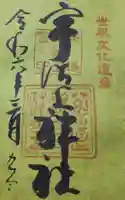 世界文化遺産
宇治上神社
令和六年三月